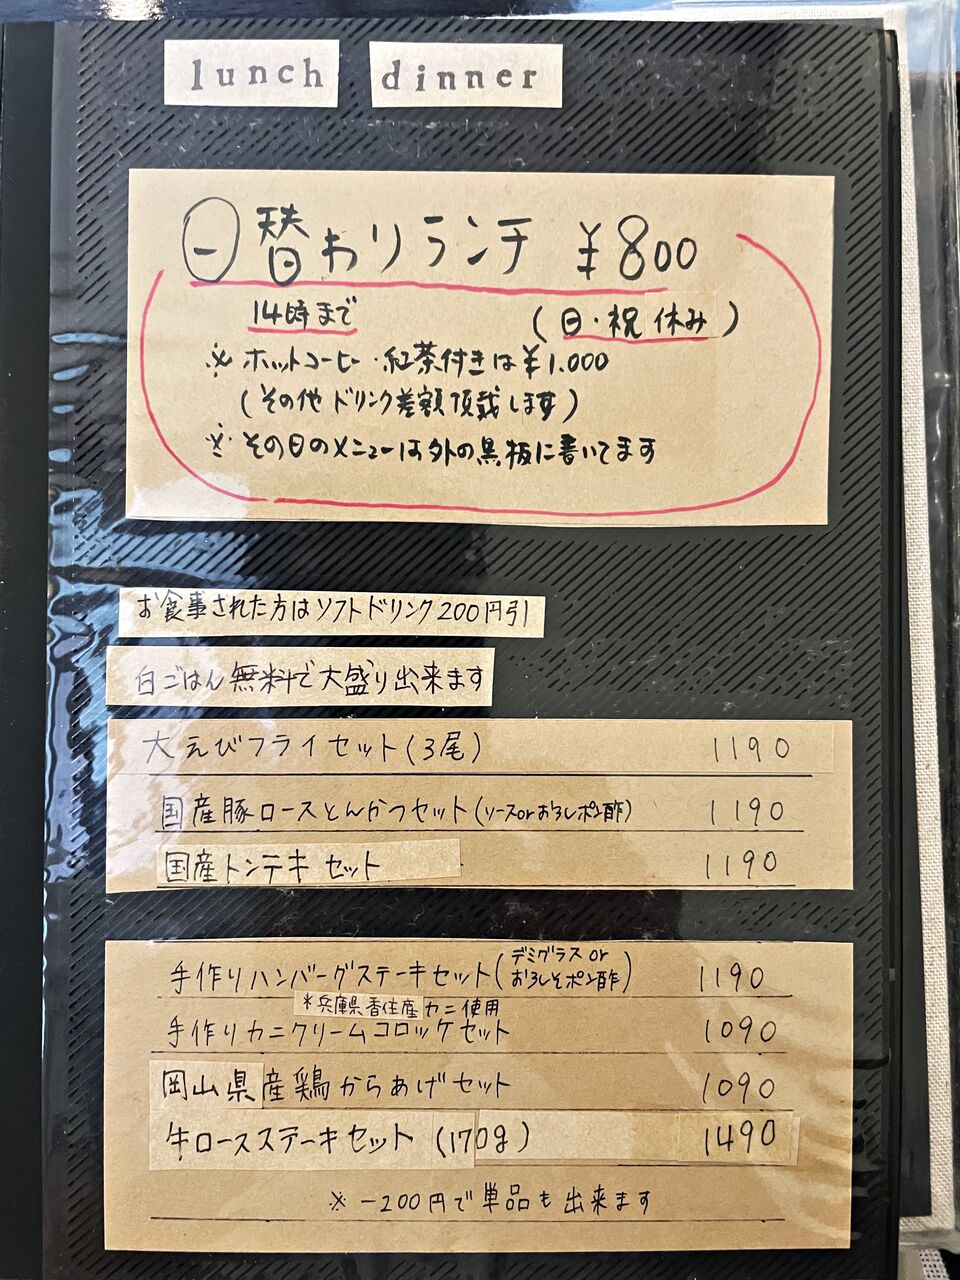 lunch dinner
日替わりランチ ¥800
14時まで (日・祝休み)
※ ホットコーヒー・紅茶付きは¥1.000
(その他ドリンク差額頂戴します)
※ その日のメニューは外の黒板に書いてます
お食事された方はソフトドリンク200円引
白ごはん無料で大盛り出来ます
大えびフライセット(3尾) 1190
国産豚ロースとんかつセット(ソースorおろしポン酢) 1190
国産トンテキセット 1190
手作りハンバーグステーキセット(デミグラスorおろしそポン酢) 1190
*兵庫県香住産カニ使用
手作りカニクリームコロッケセット 1090
岡山県産鶏からあげセット 1090
牛ロースステーキセット (170g) 1490
※ -200円で単品も出来ます